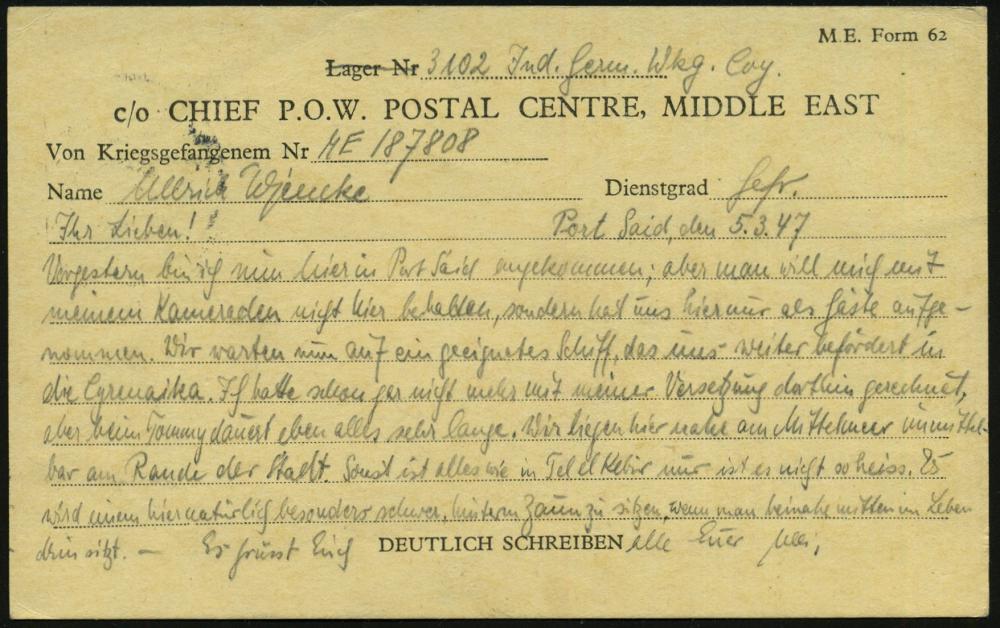 M.E. Form 62
Lager Nr 3102 Ind. Germ. Wkg. Coy.
c/o CHIEF P.O.W. POSTAL CENTRE, MIDDLE EAST
Von Kriegsgefangenem Nr ME 187808
Name Ullrich Dienstgrad Gefr.
Ihr Lieben! Port Said, den 5.3.47
Vorgestern bin ich nun hier in Port Said angekommen; aber man will mich mit
meinem Kameraden nicht hier behalten, sondern hat uns hier nur als Gäste aufge-
nommen. Wir warten nun auf ein geeignetes Schiff, das uns weiter befördert in
die Cyrenaika. Ich hatte schon gar nicht mehr mit meiner Versetzung dorthin gerechnet,
aber beim Tommy dauert eben alles sehr lange. Wir liegen hier nahe am Mittelmeer unmittel-
bar am Rande der Stadt. Sonst ist alles wie in Tel el Kebir nur ist es nicht so heiss. Es
wird einem hier natürlich besonders schwer, hinterm Zaun zu sitzen, wenn man beinahe mitten im Leben
drin sitzt. — Es grüsst Euch DEUTLICH SCHREIBEN alle Euer